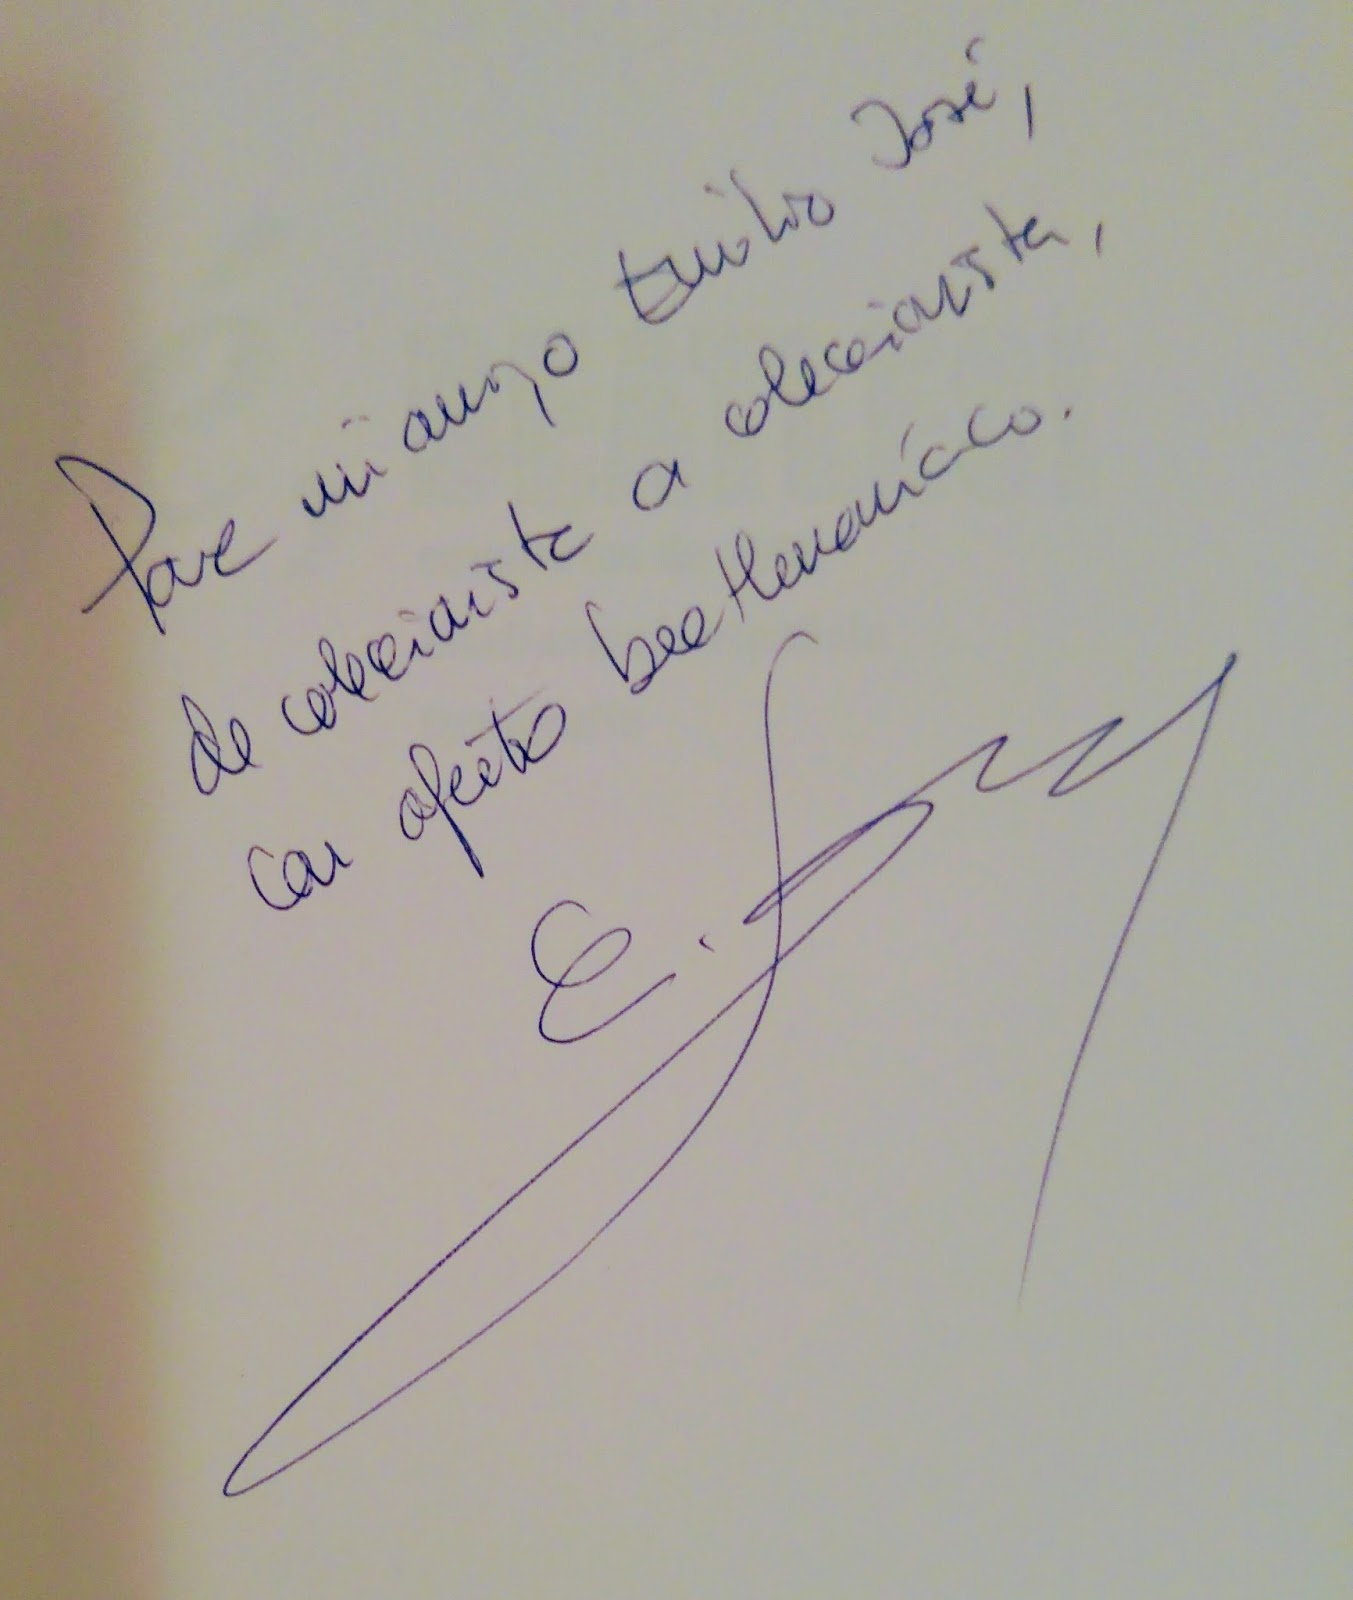 Para mi amigo Emilio José,
de coleccionista a coleccionista,
con afecto beatlemaníaco.
E.